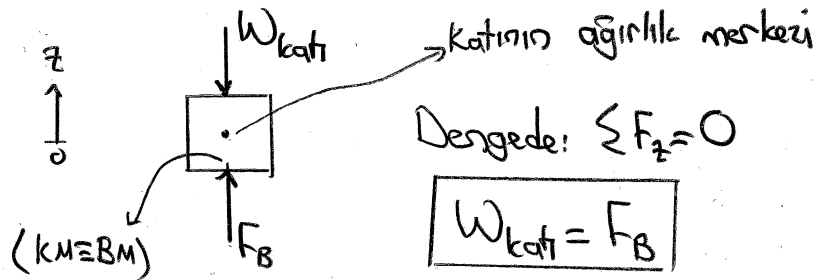 W_katı
katının ağırlık merkezi
z
0
Dengede: ΣF_z=0
W_katı = F_B
F_B
(KM≡BM)